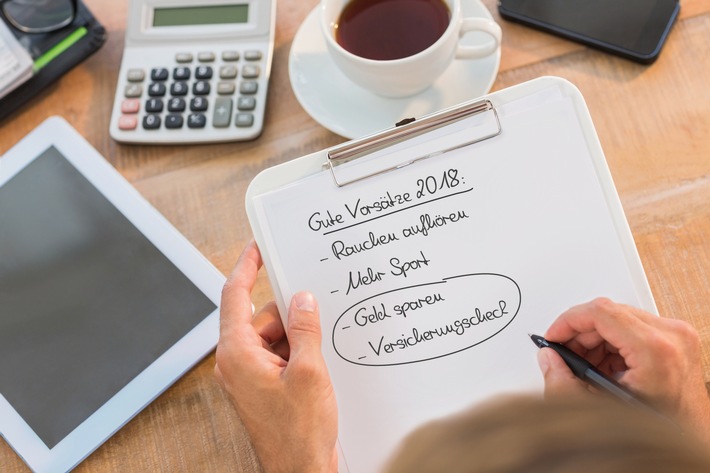 Gute Vorsätze 2018:
- Rauchen aufhören
- Mehr Sport
- Geld sparen
- Versicherungscheck